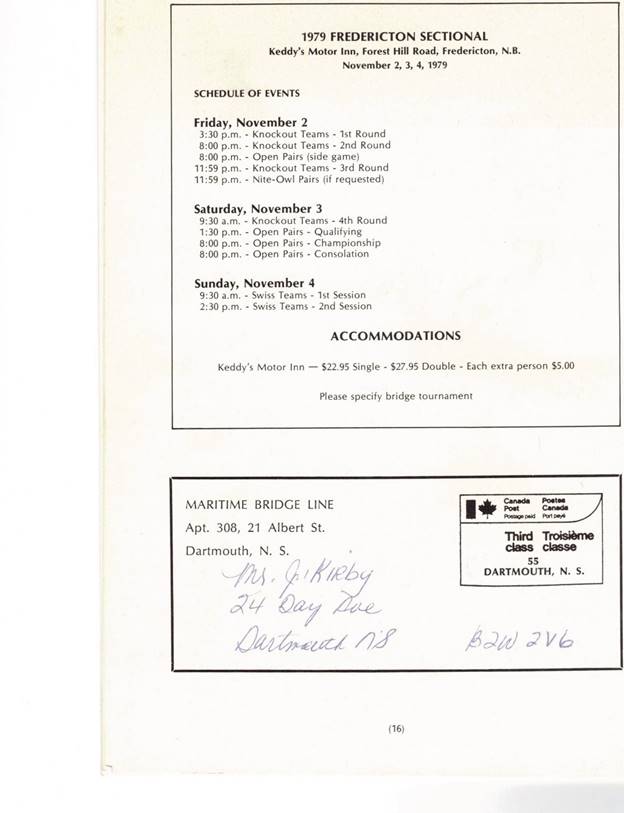 1979 FREDERICTON SECTIONAL
Keddy's Motor Inn, Forest Hill Road, Fredericton, N.B.
November 2, 3, 4, 1979
SCHEDULE OF EVENTS
Friday, November 2
3:30 p.m. - Knockout Teams - 1st Round
8:00 p.m. - Knockout Teams - 2nd Round
8:00 p.m. - Open Pairs (side game)
11:59 p.m. - Knockout Teams - 3rd Round
11:59 p.m. - Nite-Owl Pairs (if requested)
Saturday, November 3
9:30 a.m. - Knockout Teams - 4th Round
1:30 p.m. - Open Pairs - Qualifying
8:00 p.m. - Open Pairs - Championship
8:00 p.m. - Open Pairs - Consolation
Sunday, November 4
9:30 a.m. - Swiss Teams - 1st Session
2:30 p.m. - Swiss Teams - 2nd Session
ACCOMMODATIONS
Keddy's Motor Inn — $22.95 Single - $27.95 Double - Each extra person $5.00
Please specify bridge tournament
MARITIME BRIDGE LINE
Apt. 308, 21 Albert St.
Dartmouth, N. S.
Canada Postes
Post Canada
Postage paid Port payé
Third Troisième
class classe
55
DARTMOUTH, N. S.
Mr. J. Kirby
24 Day Ave
Dartmouth NS B2W 2V6
(16)